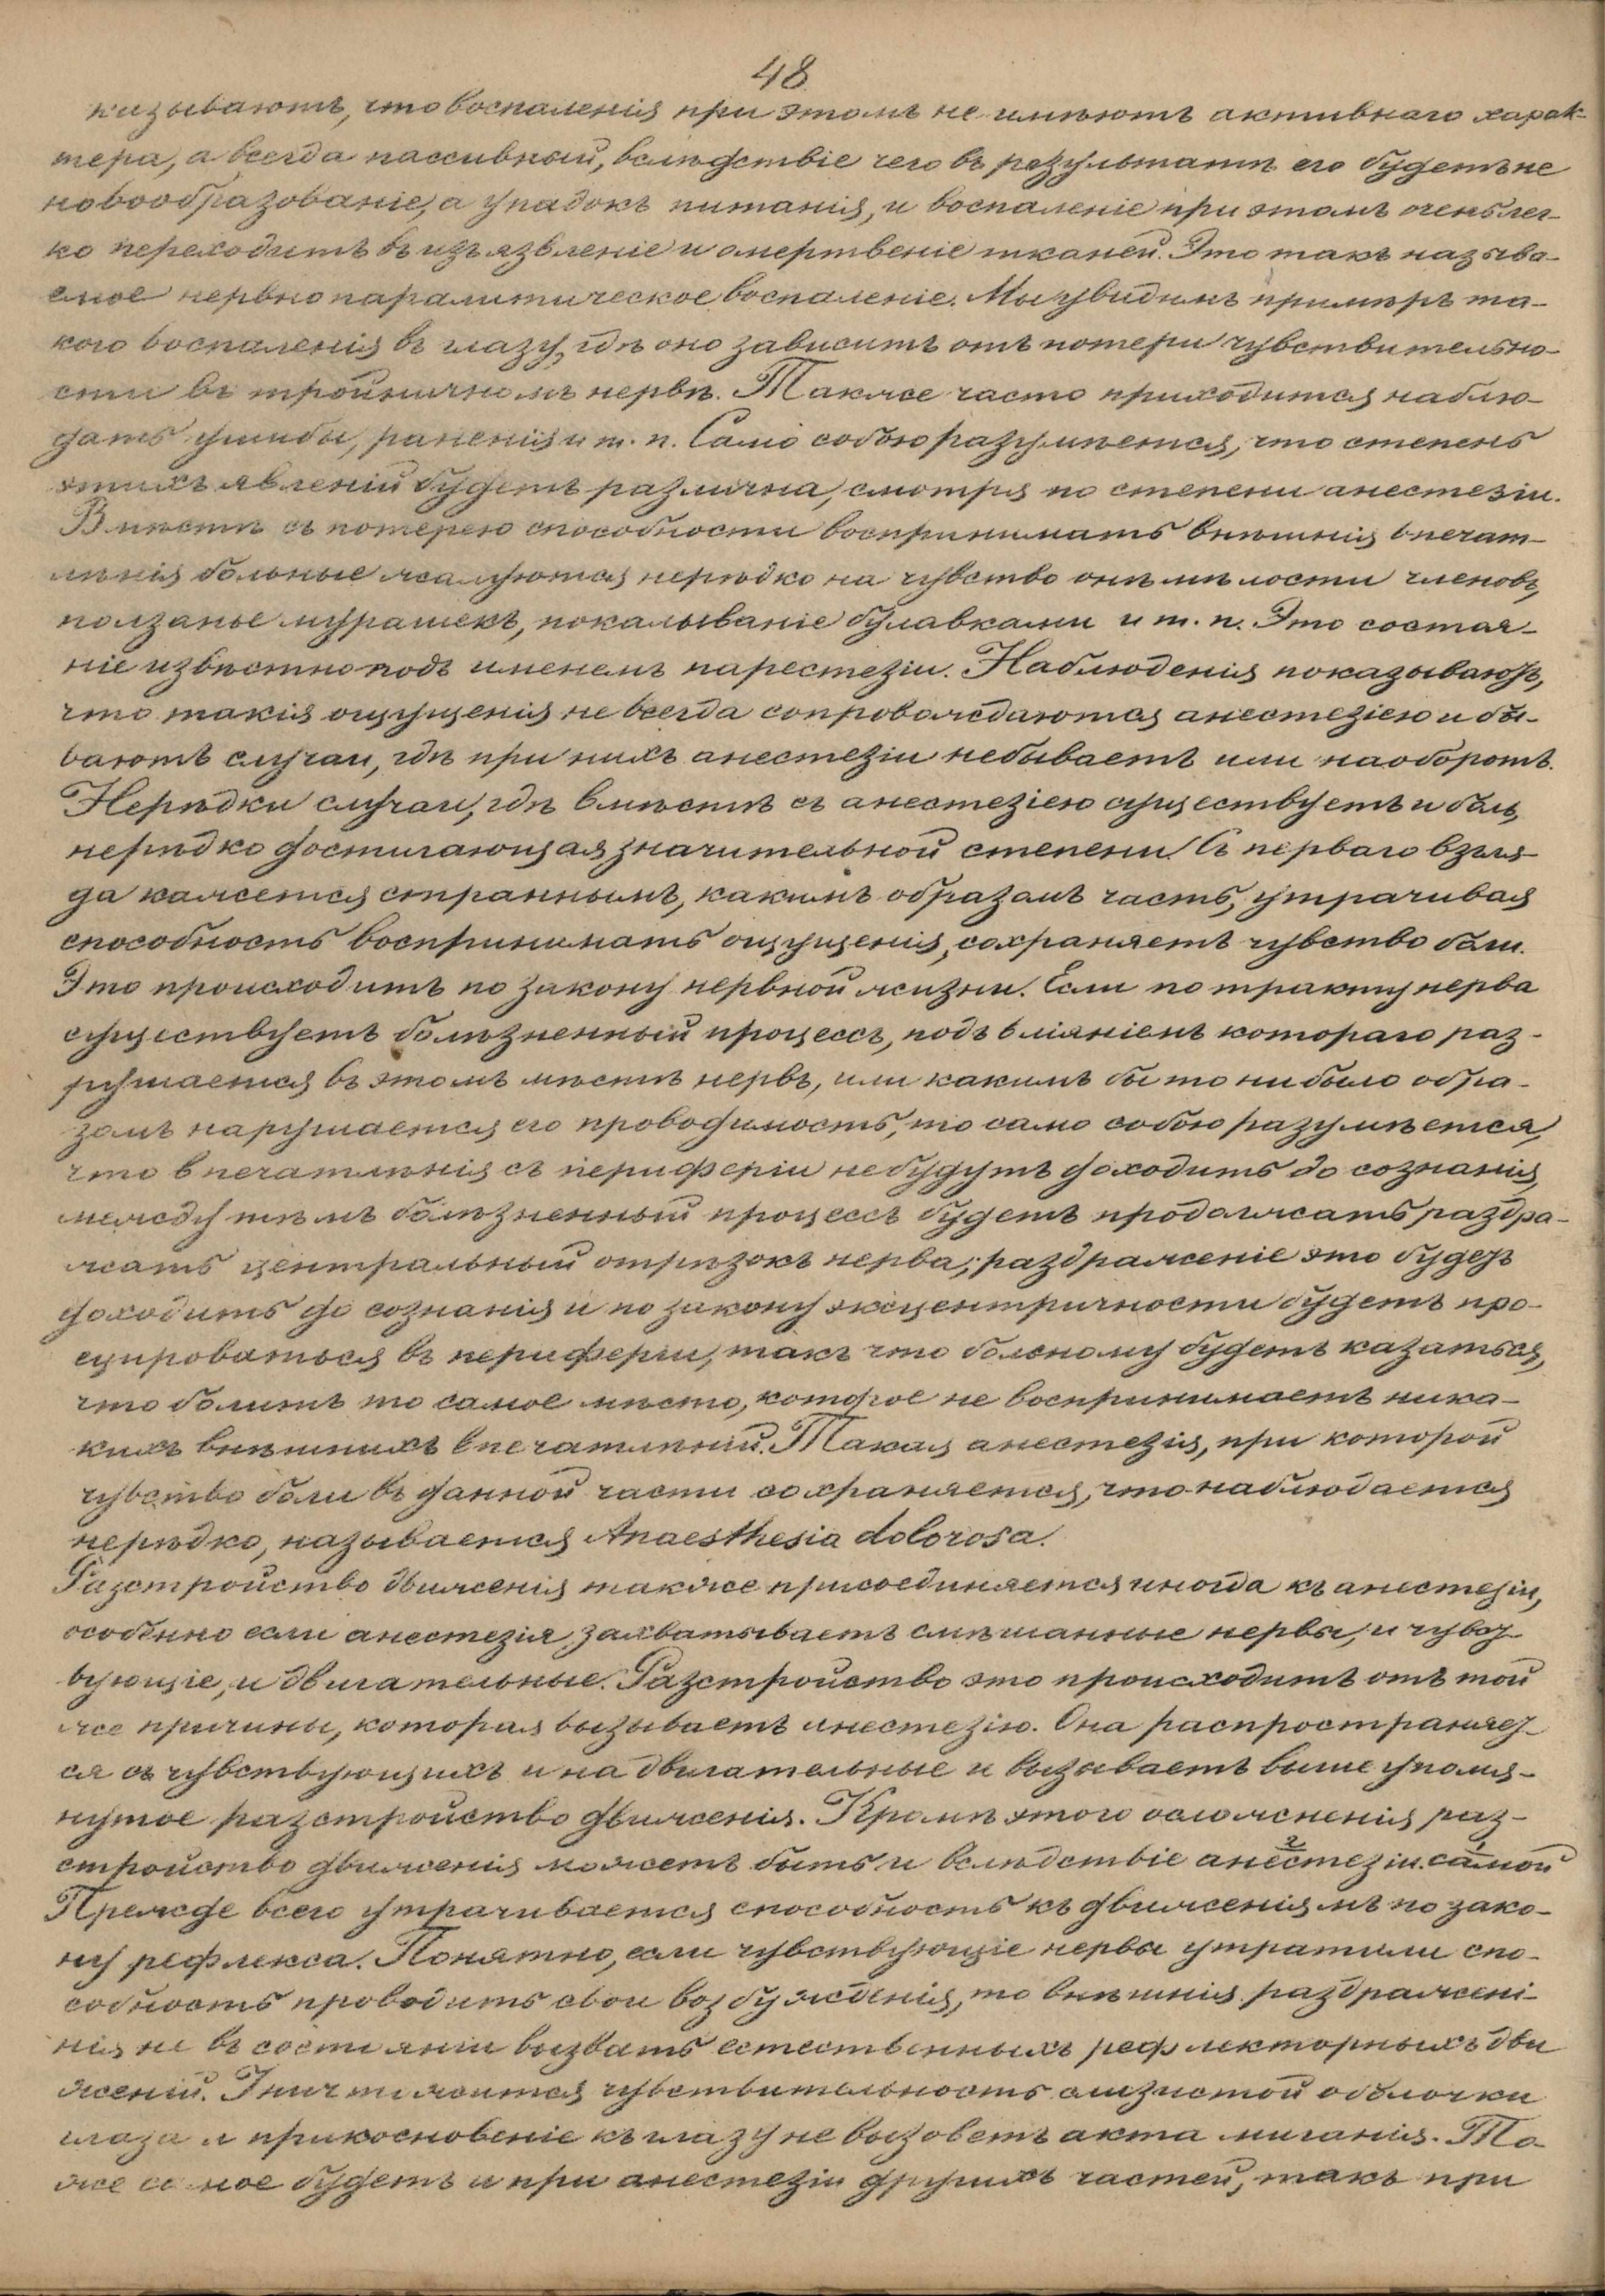 48
казываютъ, что воспаленія при этомъ не имѣютъ активнаго харак-
тера, а всегда пассивный, вслѣдствіе чего въ результатѣ его будетъ не
новообразованіе, а упадокъ питанія, и воспаленіе при этомъ очень лег-
ко переходитъ въ изъязвленіе и омертвеніе тканей. Это такъ называ-
емое нервнопаралитическое воспаленіе. Мы увидимъ примѣръ та-
кого воспаленія въ глазу, гдѣ оно зависитъ отъ потери чувствительно-
сти въ тройничномъ нервѣ. Также часто приходится наблю-
дать ушибы, раненія и т. п. Само собою разумѣется, что степень
этихъ явленій будетъ различна, смотря по степени анестезіи.
Вмѣстѣ съ потерею способности воспринимать внѣшнія впечат-
лѣнія больные жалуются нерѣдко на чувство онѣмѣлости членовъ,
ползанье мурашекъ, покалываніе булавками и т. п. Это состоя-
ніе извѣстно подъ именемъ парестезіи. Наблюденія показываютъ,
что такія ощущенія не всегда сопровождаются анестезіею и бы-
ваютъ случаи, гдѣ при нихъ анестезіи не бываетъ или наоборотъ.
Нерѣдки случаи, гдѣ вмѣстѣ съ анестезіею существуетъ и боль,
нерѣдко достигающая значительной степени. Съ перваго взгля-
да кажется страннымъ, какимъ образомъ часть, утрачивая
способность воспринимать ощущенія, сохраняетъ чувство боли.
Это происходитъ по закону нервной жизни. Если по тракту нерва
существуетъ болѣзненный процессъ, подъ вліяніемъ котораго раз-
рушается въ этомъ мѣстѣ нервъ, или какимъ бы то ни было обра-
зомъ нарушается его проводимость, то само собою разумѣется,
что впечатлѣнія съ периферіи не будутъ доходить до сознанія,
между тѣмъ болѣзненный процессъ будетъ продолжать раздра-
жать центральный отрѣзокъ нерва; раздраженіе это будетъ
доходить до сознанія и по закону эксцентричности будетъ про-
ецироваться въ периферіи, такъ что больному будетъ казаться,
что болитъ то самое мѣсто, которое не воспринимаетъ ника-
кихъ внѣшнихъ впечатлѣній. Такая анестезія, при которой
чувство боли въ данной части сохраняется, что наблюдается
нерѣдко, называется Anaesthesia dolorosa.
Разстройство движенія также присоединяется иногда къ анестезіи,
особенно если анестезія захватываетъ смѣшанные нервы, и чувст-
вующіе, и двигательные. Разстройство это происходитъ отъ той
же причины, которая вызываетъ анестезію. Она распространяет-
ся съ чувствующихъ и на двигательные и вызываетъ выше упомя-
нутое разстройство движенія. Кромѣ этого осложненія раз-
стройство движенія можетъ быть и вслѣдствіе анестезіи самой
Прежде всего утрачивается способность къ движеніямъ по зако-
ну рефлекса. Понятно, если чувствующіе нервы утратили спо-
собность проводить свои возбужденія, то внѣшнія раздражені-
нія не въ состояніи вызвать естественныхъ рефлекторныхъ дви
женій. чувствительность слизистой оболочки
глаза и прикосновеніе къ глазу не вызоветъ акта миганія. То-
же самое будетъ и при анестезіи другихъ частей, такъ при